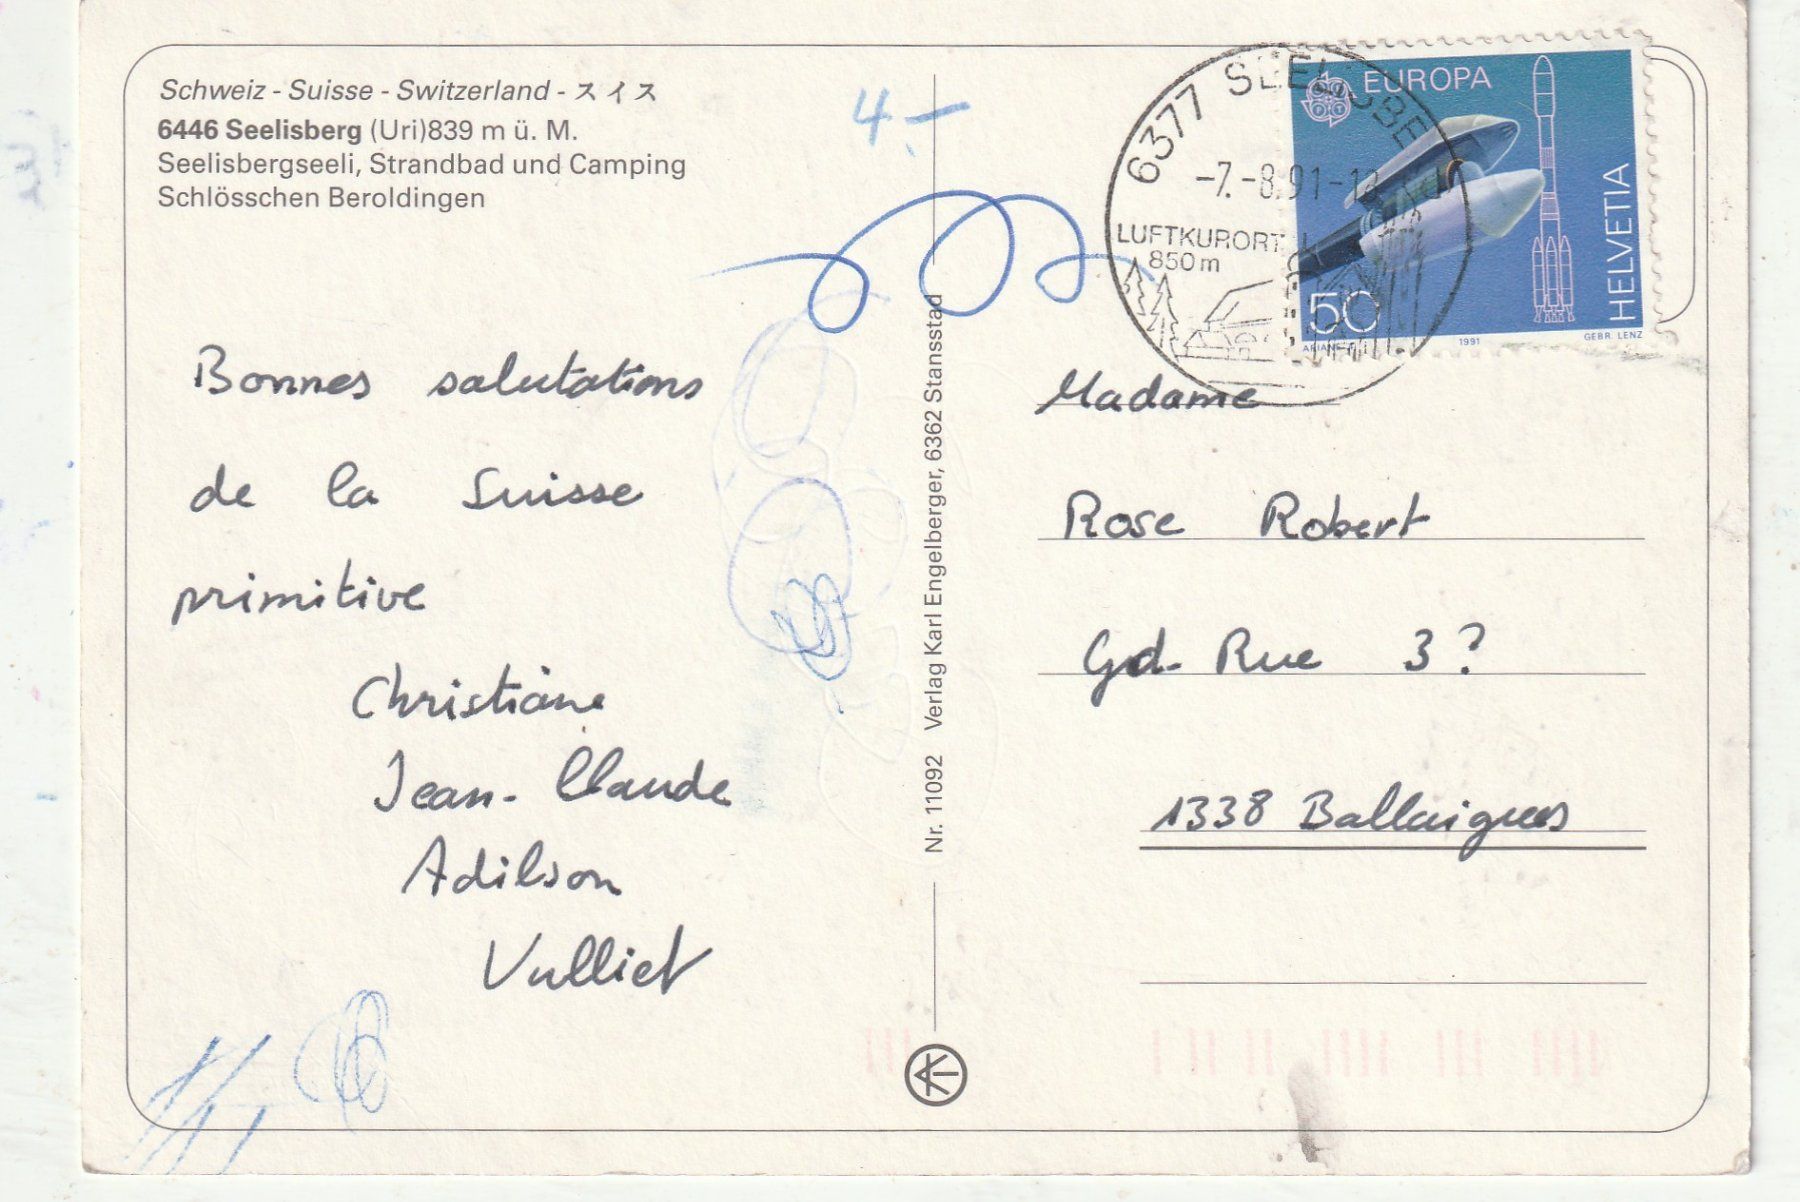 Schweiz - Suisse - Switzerland - スイス
6446 Seelisberg (Uri)839 m ü. M.
Seelisbergseeli, Strandbad und Camping
Schlösschen Beroldingen
4.-
Bonnes salutations
de la Suisse
primitive
Christiane
Jean-Claude
Adilson
Vulliet
Nr. 11092 Verlag Karl Engelberger, 6362 Stansstad
6377 SEELISBERG
-7.-8.91-12
LUFTKURORT
850 m
EUROPA
HELVETIA
50
1991
GEBR. LENZ
Madame
Rose Robert
Gd-Rue 3?
1338 Ballaigues